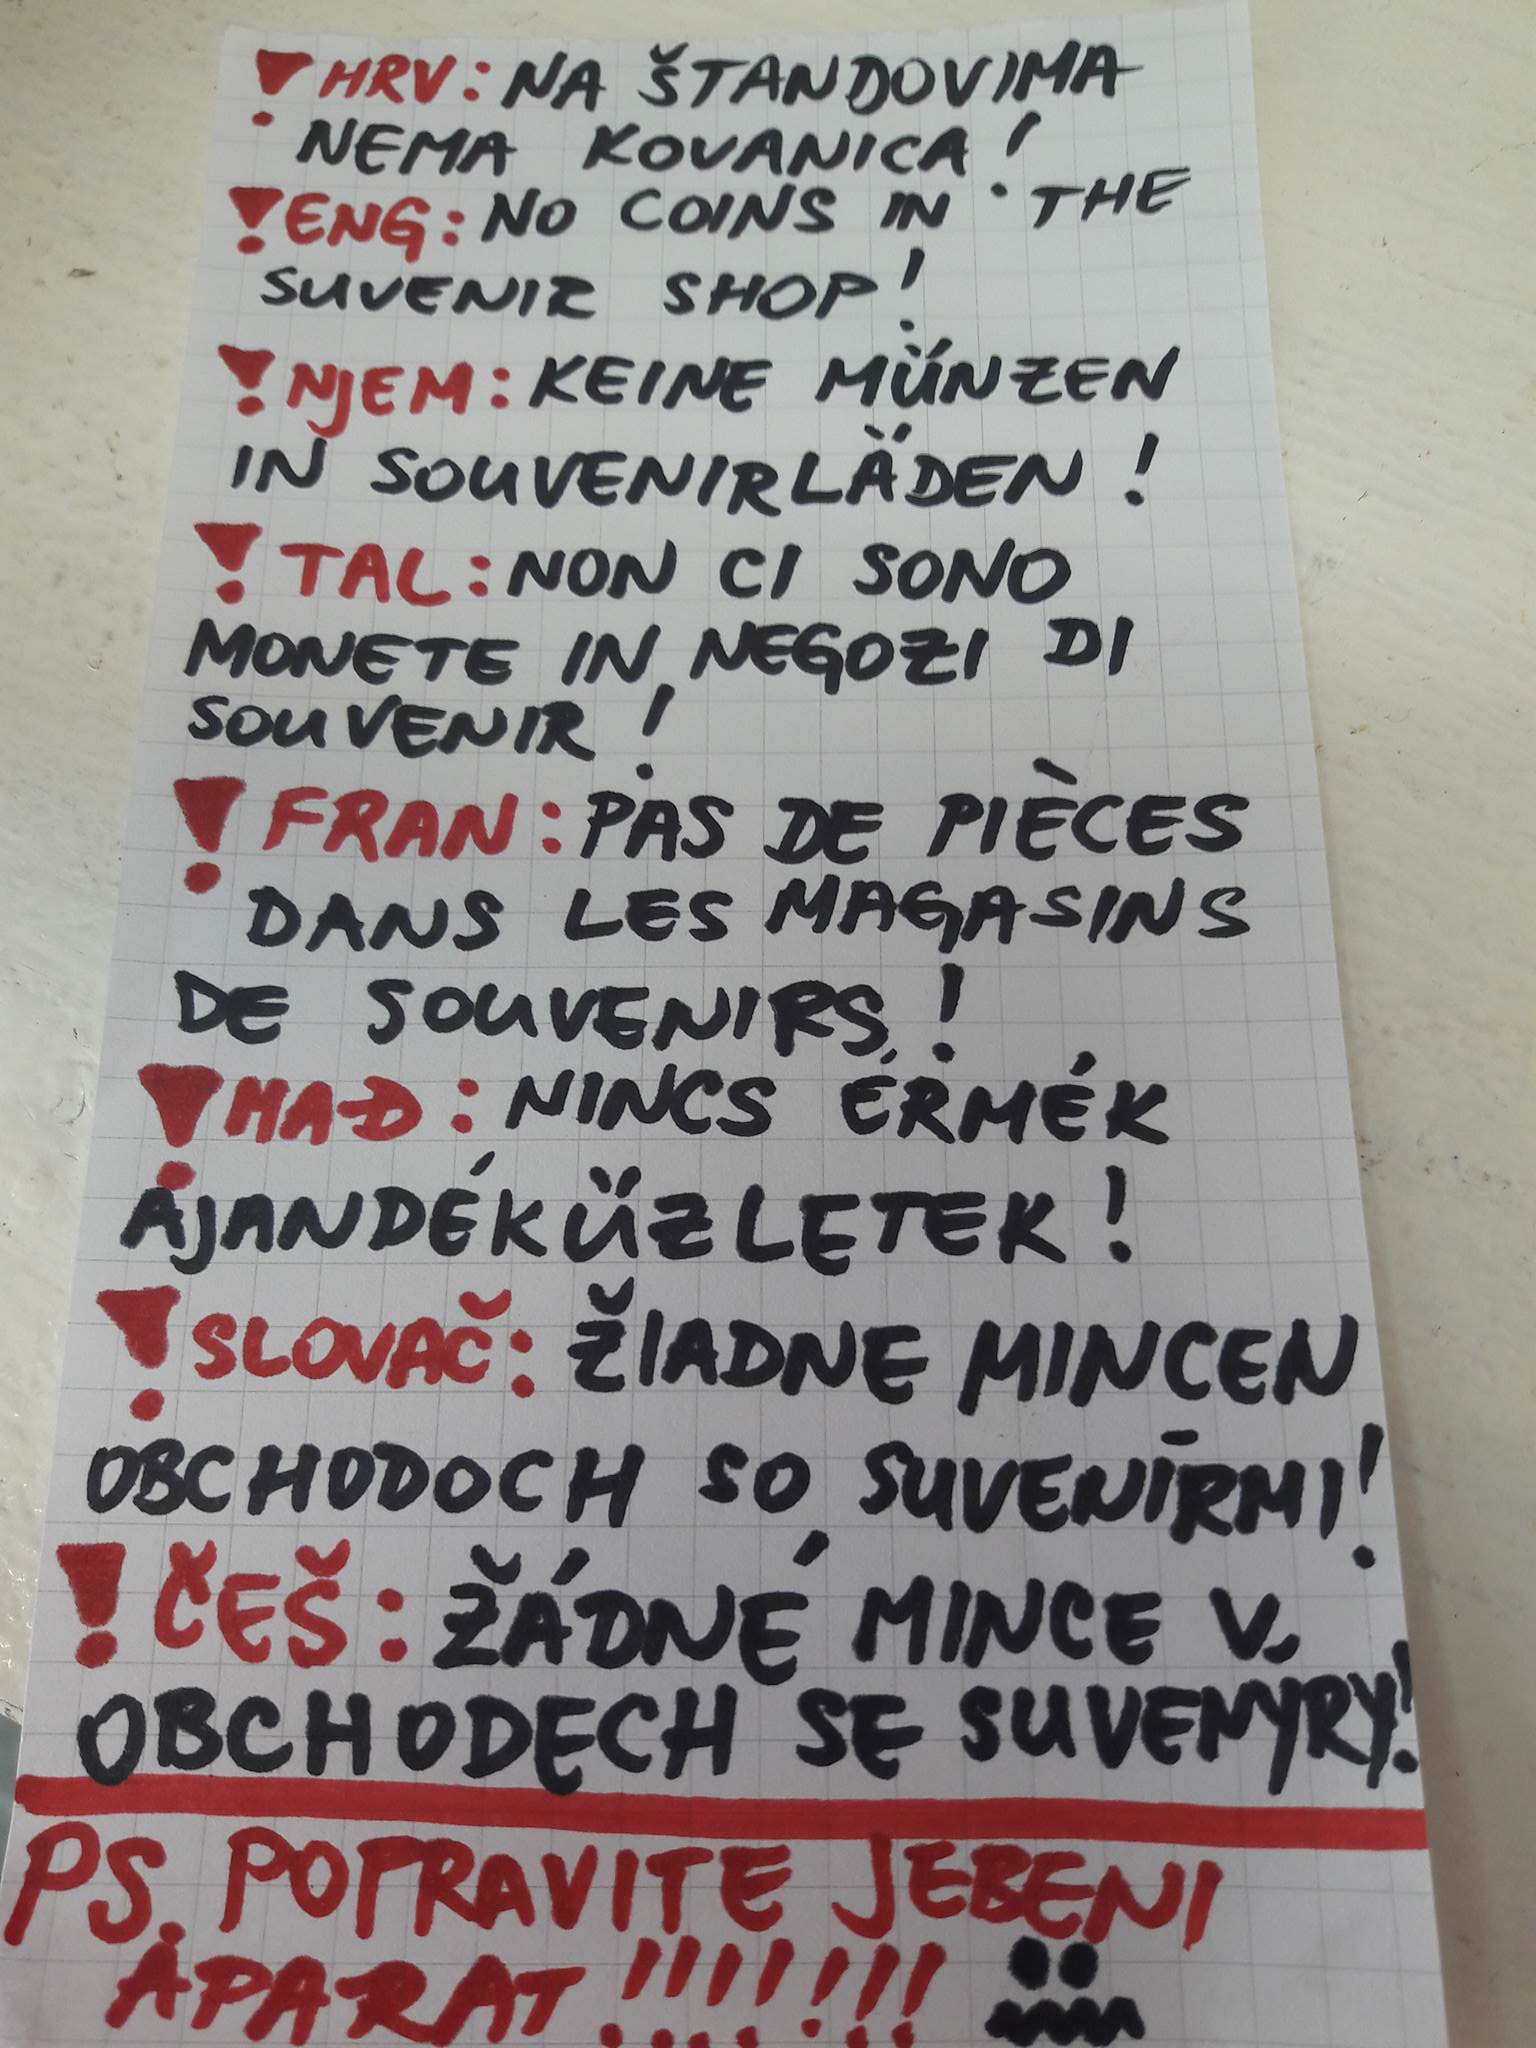 ! HRV: NA ŠTANDOVIMA
NEMA KOVANICA!
! ENG: NO COINS IN THE
SUVENIR SHOP!
! NJEM: KEINE MÜNZEN
IN SOUVENIRLÄDEN!
! TAL: NON CI SONO
MONETE IN NEGOZI DI
SOUVENIR!
! FRAN: PAS DE PIÈCES
DANS LES MAGASINS
DE SOUVENIRS!
! MAĐ: NINCS ÉRMÉK
AJANDÉKÜZLETEK!
! SLOVAČ: ŽIADNE MINCEN
OBCHODOCH SO SUVENĪRMI!
! ČEŠ: ŽÁDNÉ MINCE V.
OBCHODECH SE SUVENYRY!
PS. POPRAVITE JEBENI
APARAT!!!!!!!